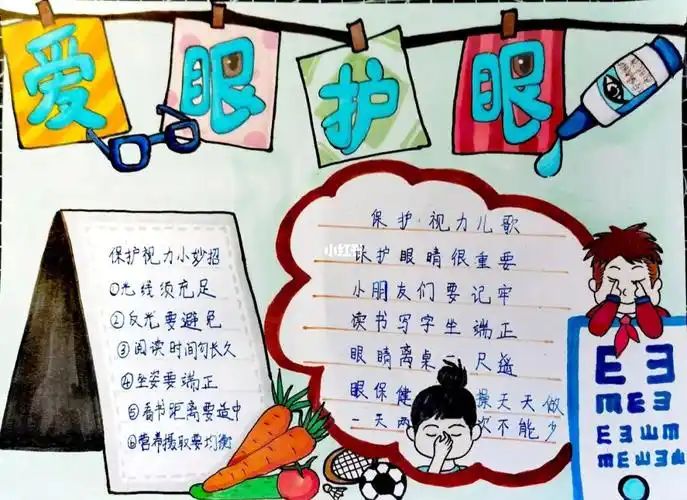 爱眼护眼
保护视力小妙招
①光线须充足
②反光要避免
③阅读时间勿长久
④坐姿要端正
⑤看书距离要适中
⑥营养摄取要均衡
保护视力儿歌
小红书
护眼睛很重要
小朋友们要记牢
读书写字坐端正
眼睛离桌一尺遥
眼保健 操天天做
一天两 次不能少
E Ǝ
m E Ǝ
E Ǝ Ш m
m E Ш Ǝ Ш